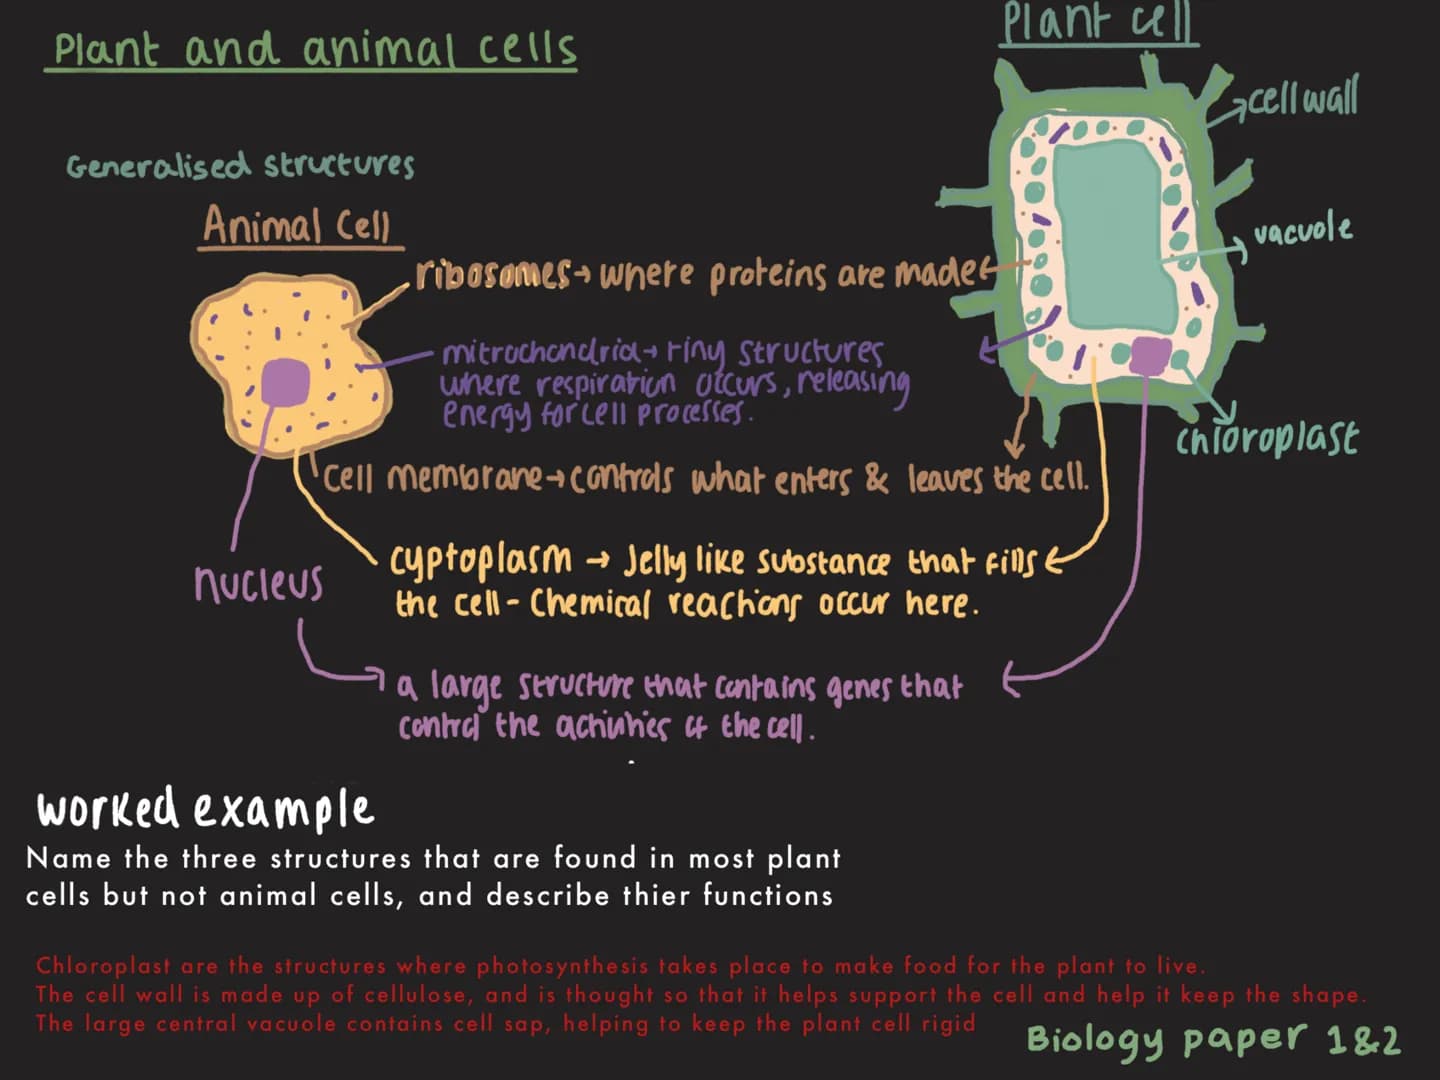 Plant cell
Plant and animal cells
cell wall
Generalised structures
Animal Cell
vacuole
ribosomes → where proteins are made
mitrochondria → tiny structures
where respiration occurs, releasing
energy for cell processes.
chloroplast
cell membrane → controls what enters & leaves the cell.
cyptoplasm → Jelly like substance that fills
the cell - Chemical reactions occur here.
nucleus
a large structure that contains genes that
control the activities of the cell.
worked example
Name the three structures that are found in most plant
cells but not animal cells, and describe thier functions
Chloroplast are the structures where photosynthesis takes place to make food for the plant to live.
The cell wall is made up of cellulose, and is thought so that it helps support the cell and help it keep the shape.
The large central vacuole contains cell sap, helping to keep the plant cell rigid
Biology paper 1&2